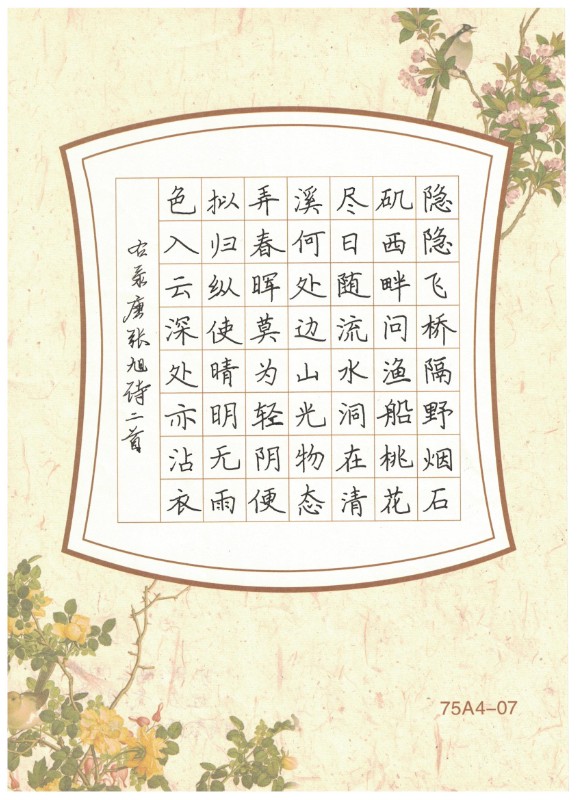 隐隐飞桥隔野烟石
矶西畔问渔船桃花
尽日随流水洞在清
溪何处边山光物态
弄春晖莫为轻阴便
拟归纵使晴明无雨
色入云深处亦沾衣
右录唐张旭诗二首
75A4-07